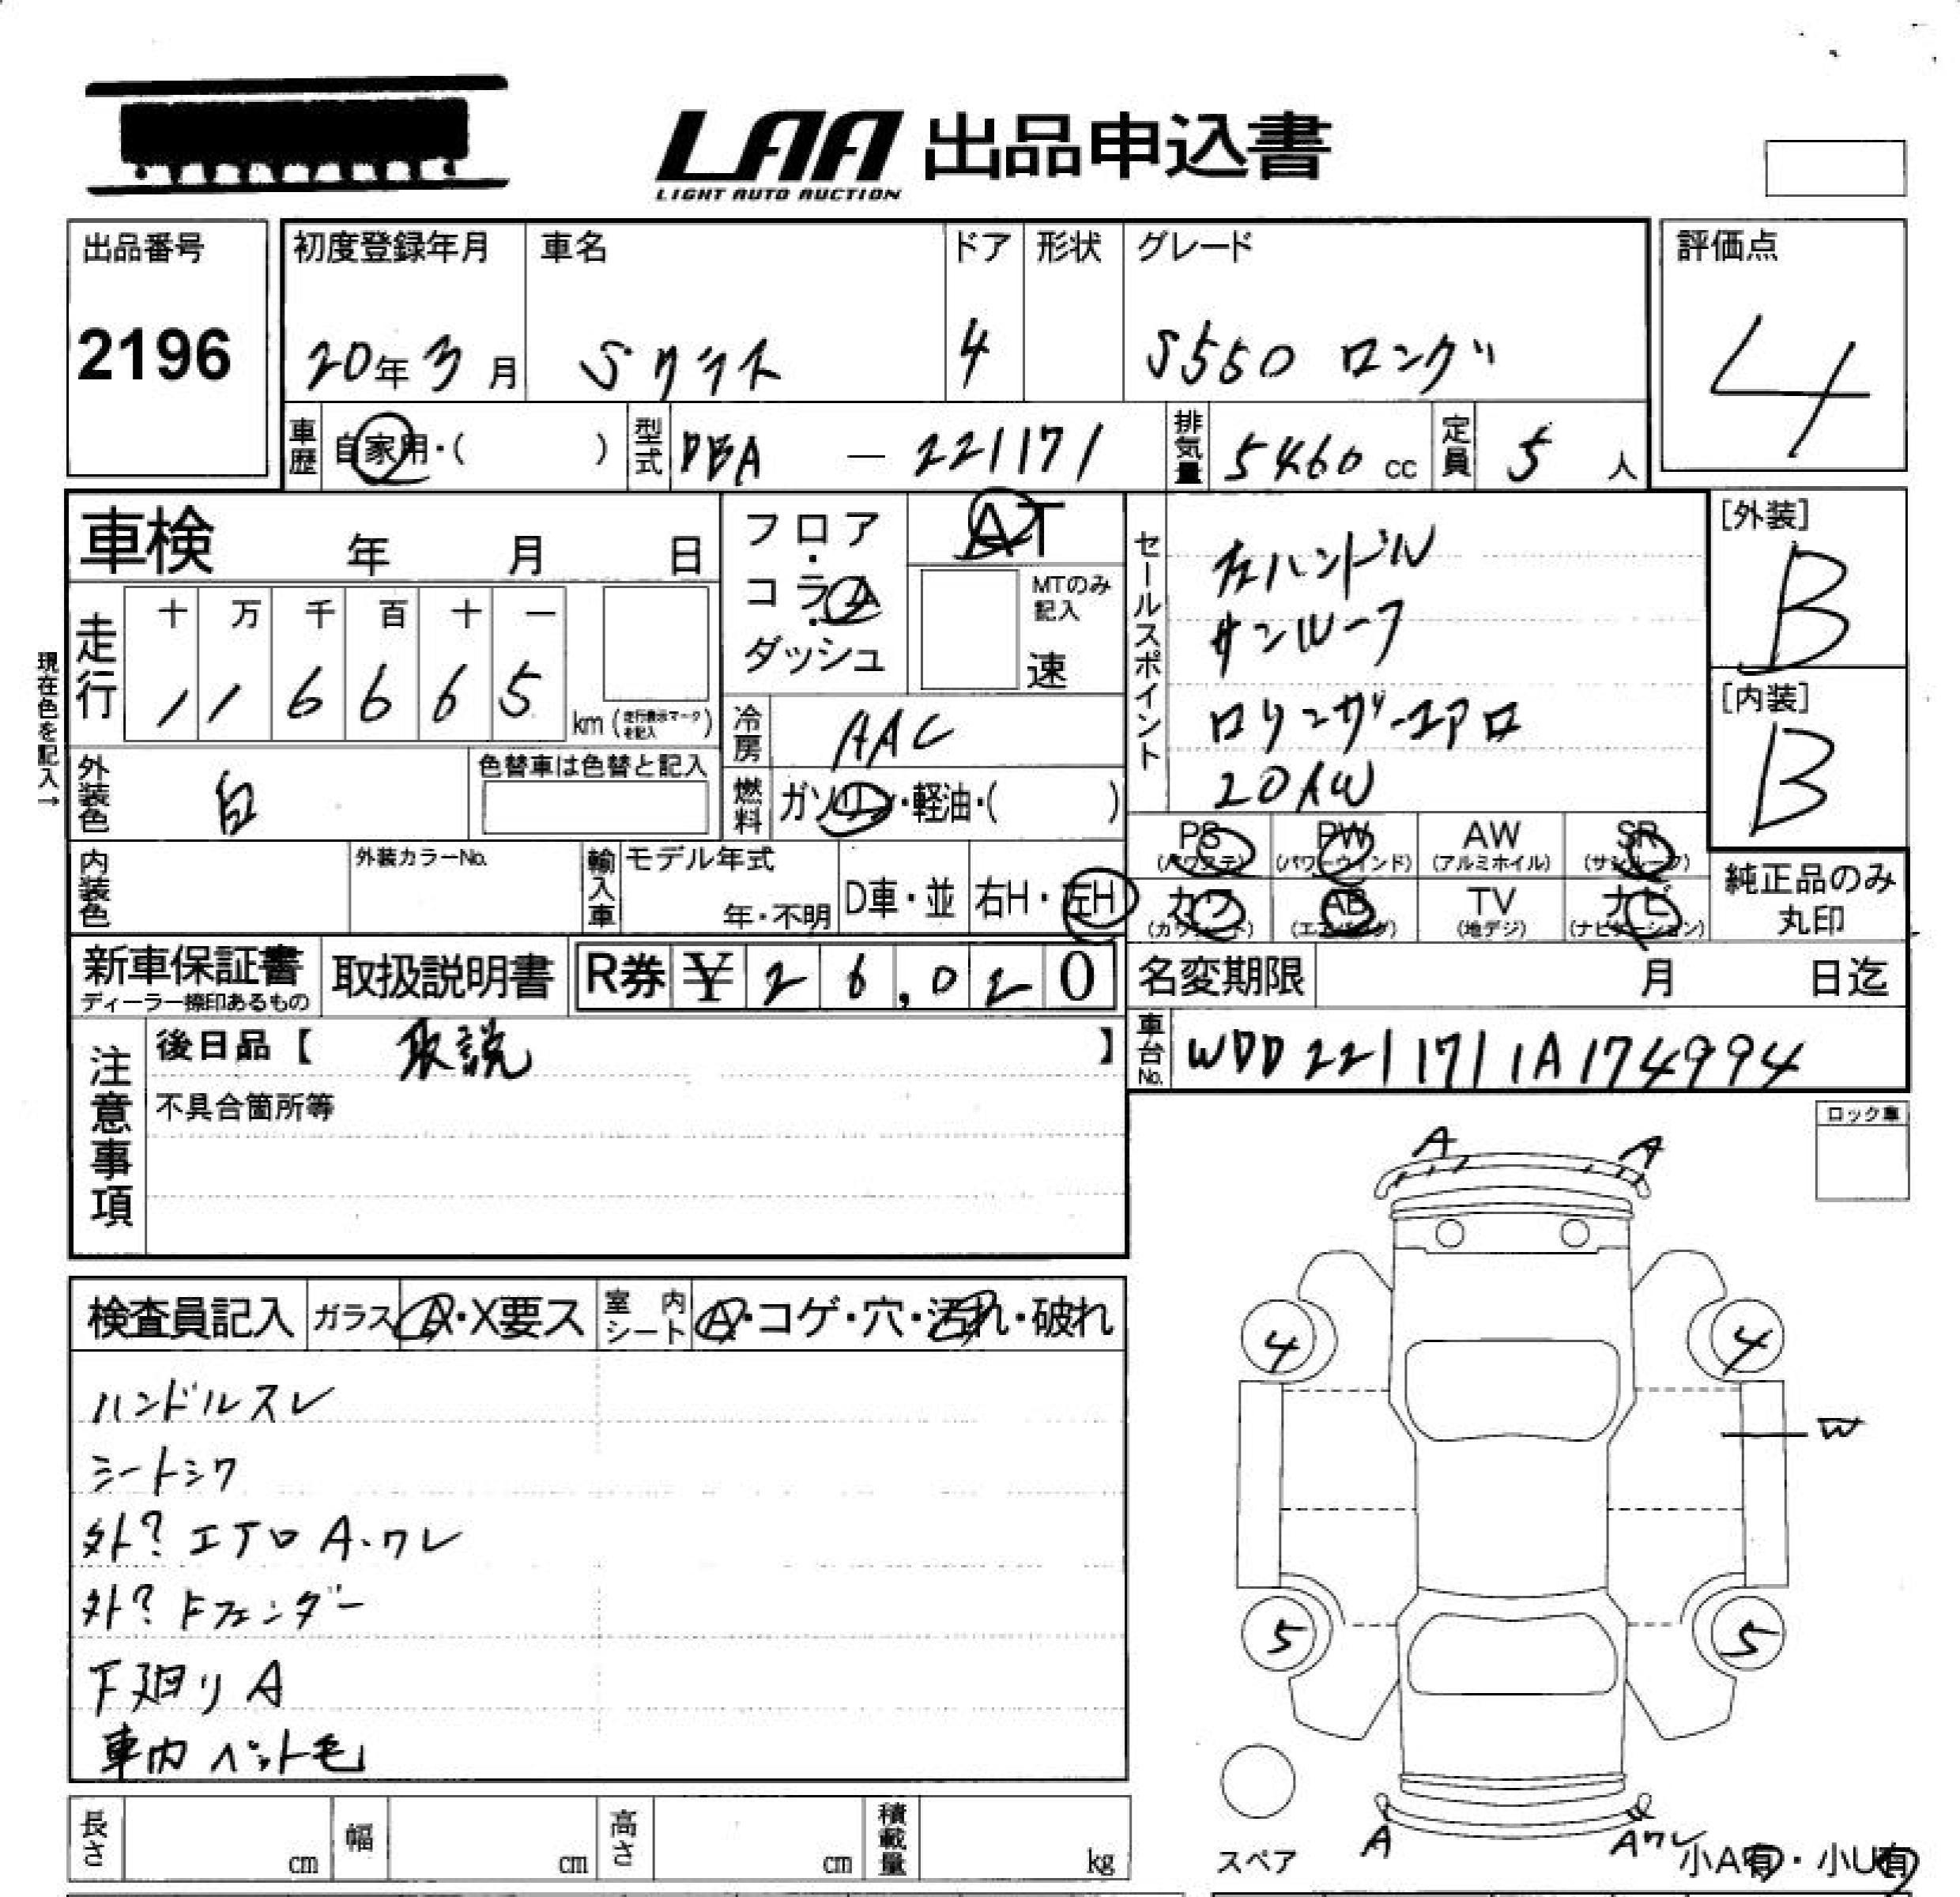 LAA 出品申込書
LIGHT AUTO AUCTION
出品番号
2196
初度登録年月
20年3月
車名
Sクラス
ドア
4
形状
グレード
S550 ロング
評価点
4
車歴
自家用・( )
型式
DBA — 221171
排気量
5460 cc
定員
5 人
車検 年 月 日
フロア・コラム・ダッシュ
AT
MTのみ記入
速
セールスポイント
左ハンドル
サンルーフ
ロリンザーエアロ
20AW
[外装]
B
[内装]
B
現在色を記入→
走行
十 万 千 百 十 一
1 1 6 6 6 5
km (走行表示マークを記入)
冷房
AAC
外装色
白
色替車は色替と記入
燃料
ガソリン・軽油・( )
PS (パワステ) PW (パワーウインド) AW (アルミホイル) SR (サンルーフ)
カワ (カワシート) AB (エアバッグ) TV (地デジ) ナビ (ナビゲーション)
純正品のみ丸印
内装色
外装カラーNo.
輸入車
モデル年式
年・不明
D車・並
右H・左H
新車保証書
ディーラー捺印あるもの
取扱説明書
R券 ¥ 2 6,0 2 0
名変期限 月 日迄
注意事項
後日品【 取説 】
不具合箇所等
車台No.
WDD2211711A174994
ロック車
A A
検査員記入
ガラス A・X要ス
室内シート A・コゲ・穴・汚れ・破れ
ハンドルスレ
シートシワ
外? エアロ A・ワレ
外? Fフェンダー
下廻り A
車内 ペット毛
4 4
W
5 5
スペア
A Aワレ
小A有・小U有
長さ cm
幅 cm
高さ cm
積載量 kg